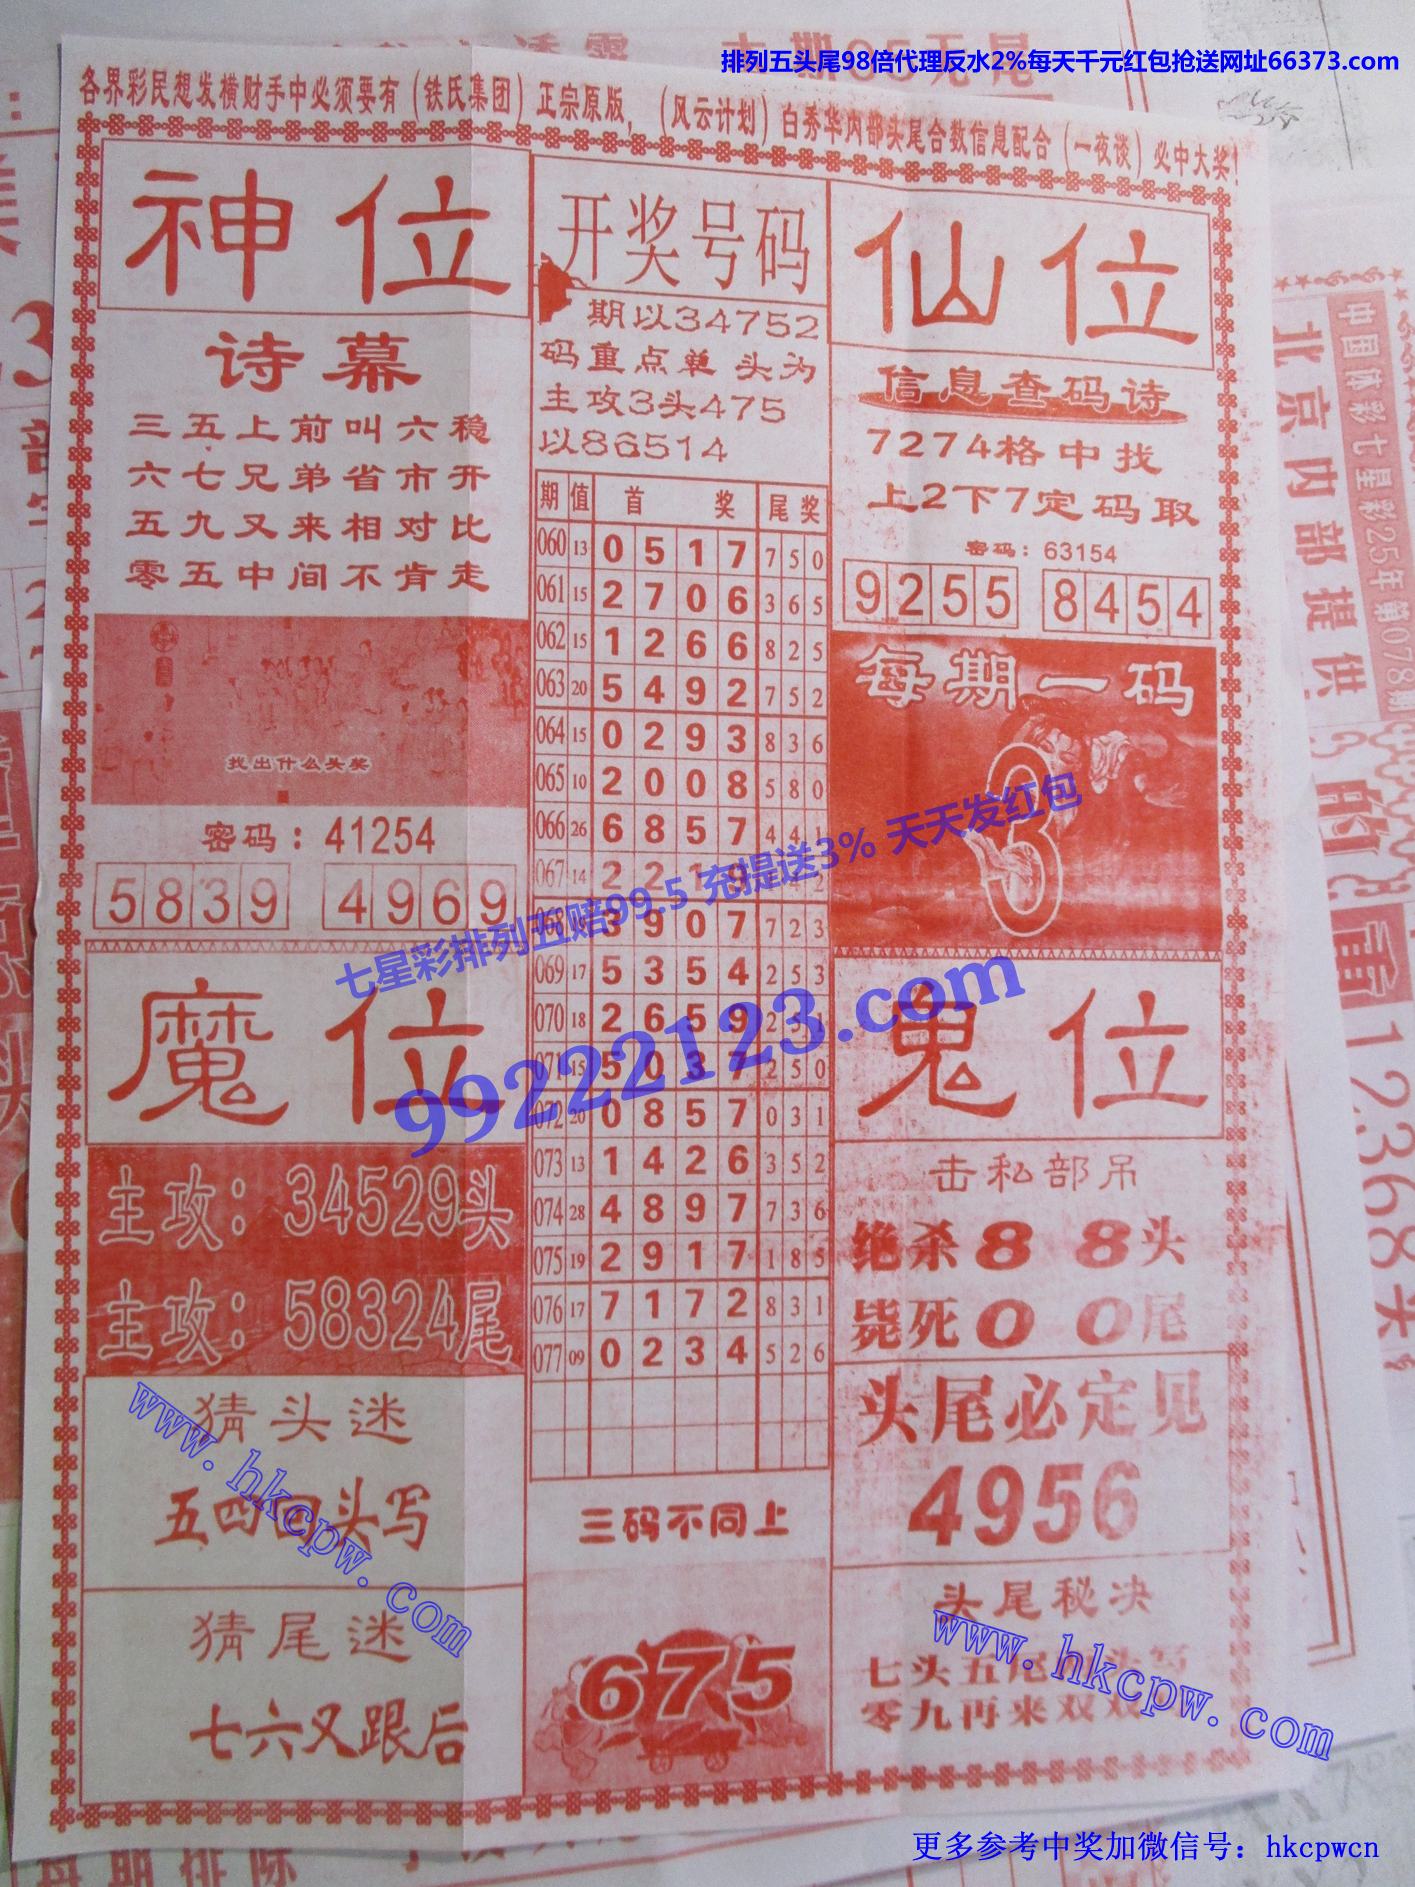 排列五头尾98倍代理反水2%每天千元红包抢送网址66373.com
各界彩民想发横财手中必须要有（铁氏集团）正宗原版，（风云计划）白秀华内部头尾合数信息配合（一夜谈）必中大奖！
神位
诗幕
三五上前叫六稳
六七兄弟省市开
五九又来相对比
零五中间不肯走
找出什么头奖
密码：41254
5839 4969
魔位
主攻：34529头
主攻：58324尾
猜头迷
五四回头写
猜尾迷
七六又跟后
开奖号码
期以34752
码重点单 头为
主攻3头475
以86514
期 值 首 奖 尾 奖
060 13 0 5 1 7 7 5 0
061 15 2 7 0 6 3 6 5
062 15 1 2 6 6 8 2 5
063 20 5 4 9 2 7 5 2
064 15 0 2 9 3 8 3 6
065 10 2 0 0 8 5 8 0
066 26 6 8 5 7 4 4 1
067 14 2 2 1 9 2
068 19 3 9 0 7 7 2 3
069 17 5 3 5 4 2 5 3
070 18 2 6 5 9
071 15 5 0 3 7 2 5 0
072 20 0 8 5 7 0 3 1
073 13 1 4 2 6 3 5 2
074 28 4 8 9 7 7 3 6
075 19 2 9 1 7 1 8 5
076 17 7 1 7 2 8 3 1
077 09 0 2 3 4 5 2 6
三码不同上
675
仙位
信息查码诗
7274格中找
上2下7定码取
密码：63154
9255 8454
每期一码
3
鬼位
击私部吊
绝杀8 8头
毙死0 0尾
头尾必定见
4956
头尾秘决
七头五尾
零九再来双
七星彩排列五赔99.5 充提送3% 天天发红包
99222123.com
www.hkcpw.com
www.hkcpw.com
中国体彩七星彩25年第078期
北京内部提供
的
重12368头
更多参考中奖加微信号：hkcpwcn